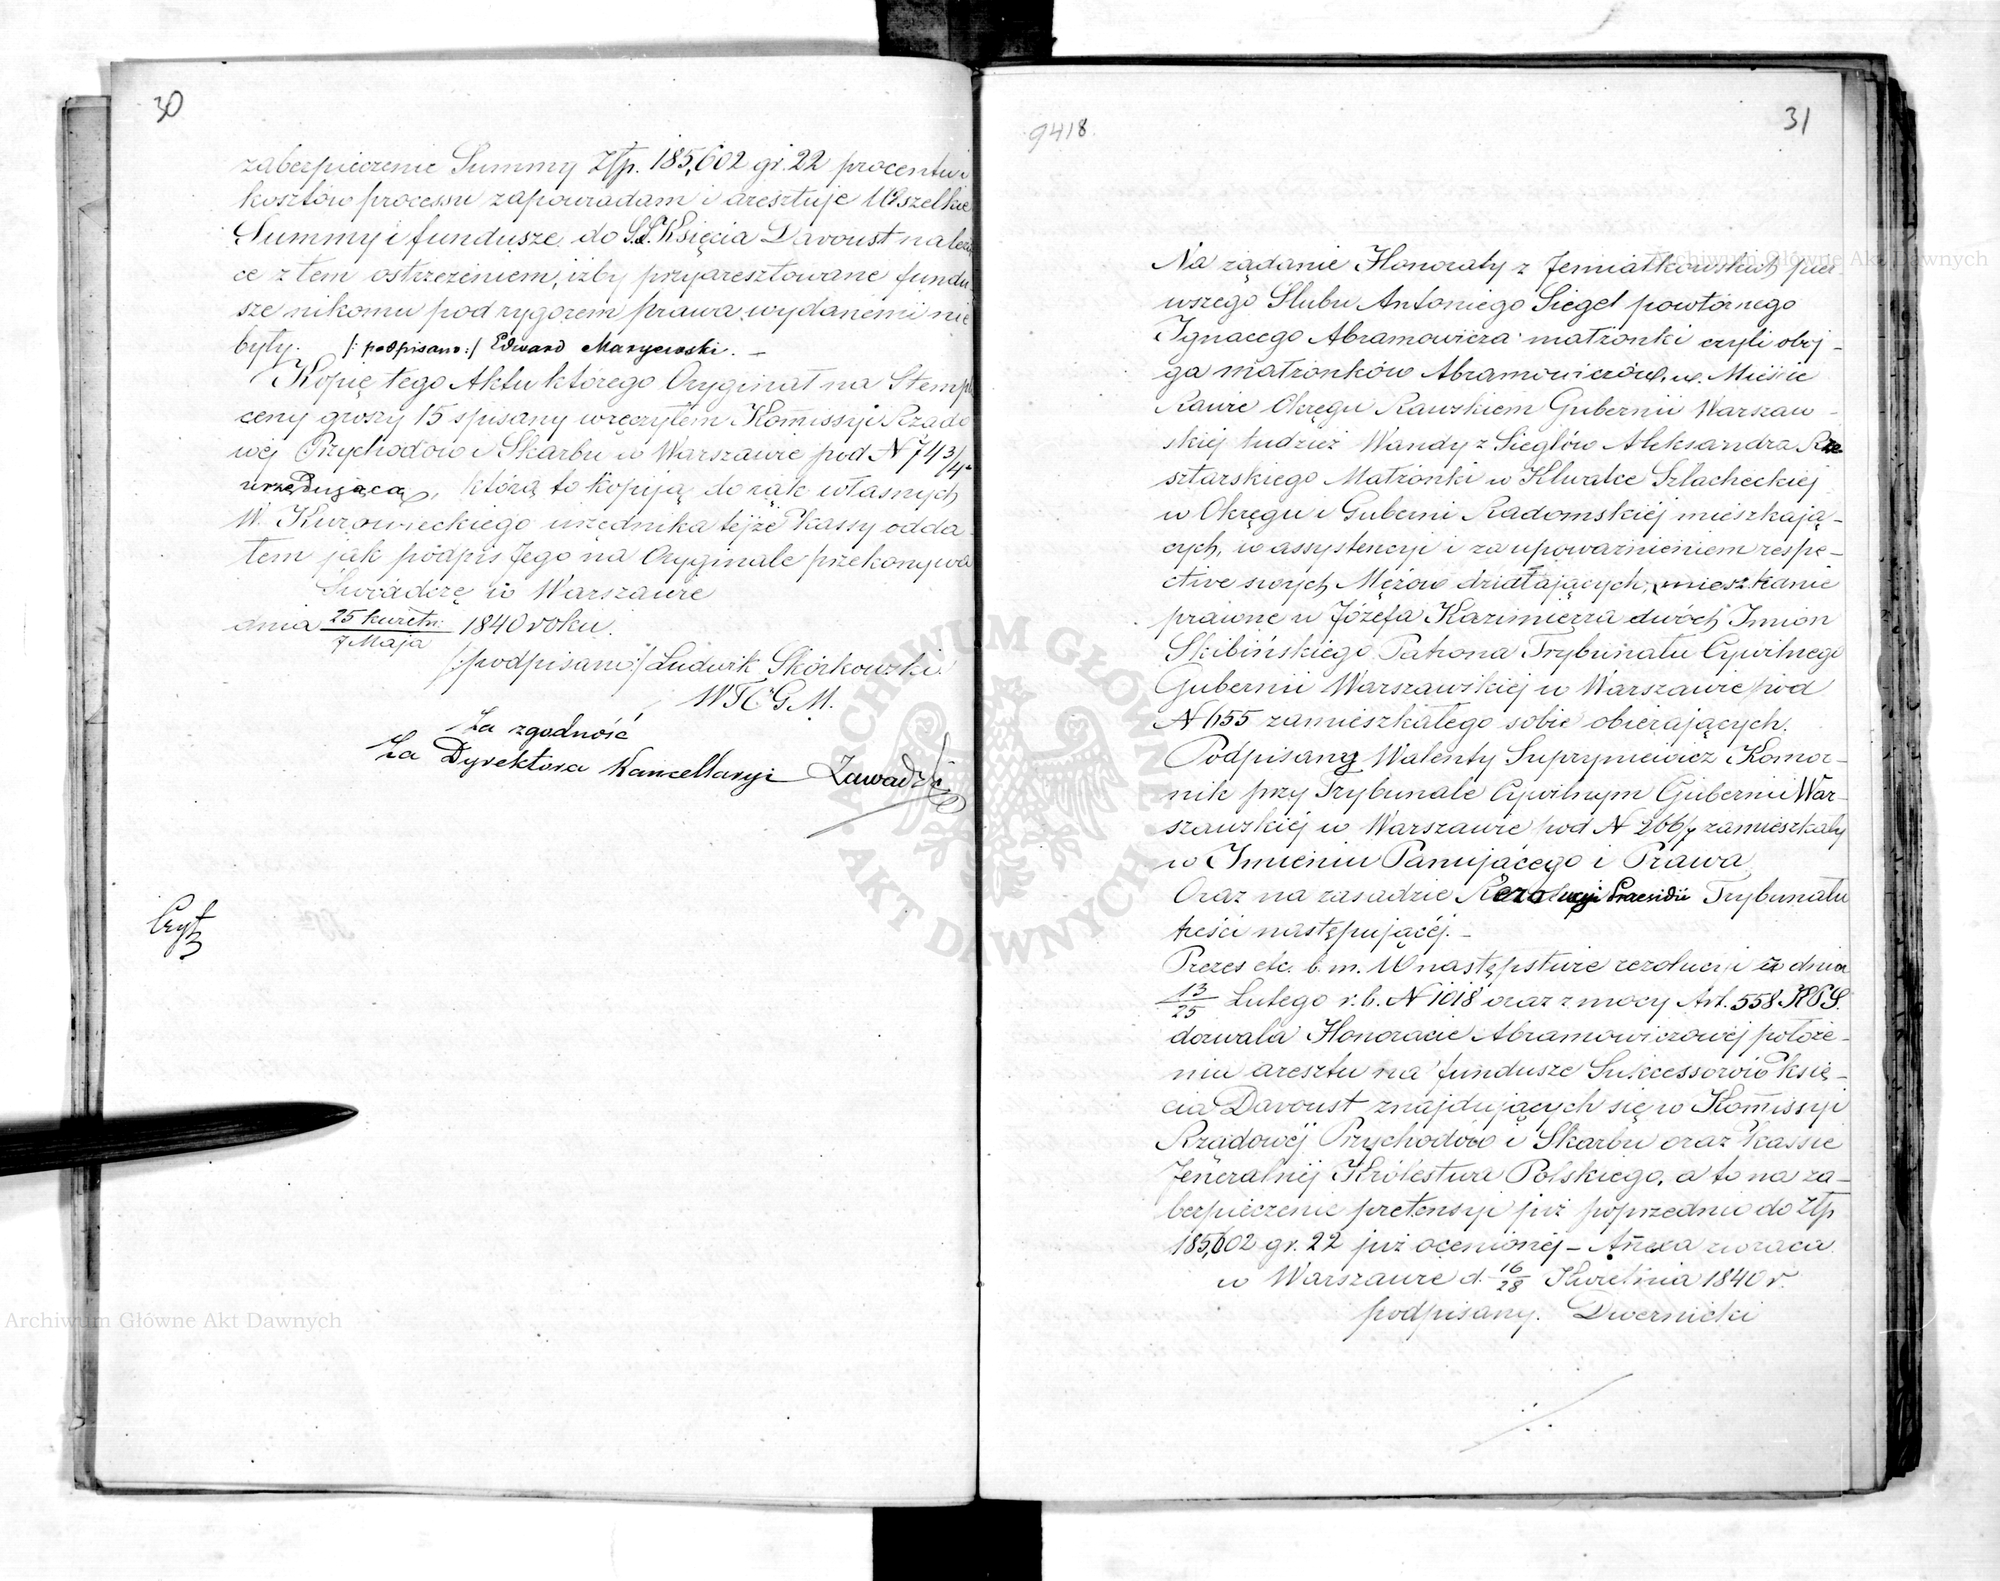 30
zabezpieczenie Summy Złp. 185,602 gr. 22 procentu i
kosztów processu zapowiadam i aresztuje Wszelkie
Summy i fundusze do S.S. Księcia Davoust należą
ce z tem ostrzeżeniem, iżby przyaresztowane fundu-
sze nikomu pod rygorem prawa wydanemi nie
były. /: podpisano :/ Edward Maryewski. –
Kopię tego Aktu którego Oryginał na Stemplu
ceny groszy 15 spisany wręczyłem Kommissyi Rządo
wéj Przychodów i Skarbu w Warszawie pod N 743/4
urzędującą, którą to kopiją do rąk własnych
W. Kurowieckiego urzędnika tejże kassy odda-
łem jak podpis Jego na Oryginale przekonywa
Swiadczę w Warszawie
dnia 25 kwietn: / 7 Maja 1840 roku.
/: podpisano :/ Ludwik Skórkowski
W T C G M.
Za zgodność
Za Dyrektora Kancellaryi Zawadzki
Czyt
9418.
31
Na żądanie Honoraty z Jemiałkowskich pier-
wszego Slubu Antoniego Siegel powtórnego
Ignacego Abramowicza małżonki czyli oboj-
ga małżonków Abramowiczów, w Mieście
Rawie Okręgu Rawskiem Gubernii Warszaw-
skiej tudzież Wandy z Sieglów Aleksandra Rze
sztarskiego Małżonki w Klwatce Szlacheckiej
w Okręgu i Guberni Radomskiéj mieszkają-
cych, w assystencyi i za upoważnieniem respe-
ctive swych Mężów działających, mieszkanie
prawne u Józefa Kazimierza dwóch Imion
Skibińskiego Patrona Trybunału Cywilnego
Gubernii Warszawskiej w Warszawie pod
N 655 zamieszkałego sobie obierających.
Podpisany Walenty Supryniewicz Komor-
nik przy Trybunale Cywilnym Gubernii War-
szawskiej w Warszawie pod N 266/7 zamieszkały
w Imieniu Panującego i Prawa
Oraz na zasadzie Rezolucyi Praesidii Trybunału
treści następującéj. –
Prezes etc. b. m. W następstwie rezolucyi z dnia
13/25 Lutego r. b. N 1018 oraz z mocy Art. 558 K P S.
dozwala Honoracie Abramowiczowéj położe-
niu aresztu na fundusze Sukcessorów Księ-
cia Davoust znajdujących się w Kommissyi
Rządowéj Przychodów i Skarbu oraz Kassie
Jeneralnéj Królestwa Polskiego, a to na za-
bezpieczenie pretensyi już poprzednio do Złp
185,602 gr. 22 już ocenionéj – Annexa zwraca
w Warszawie d. 16/28 Kwietnia 1840 r.
podpisany. Dwernicki
Archiwum Główne Akt Dawnych
Archiwum Główne Akt Dawnych
ARCHIWUM GŁÓWNE AKT DAWNYCH